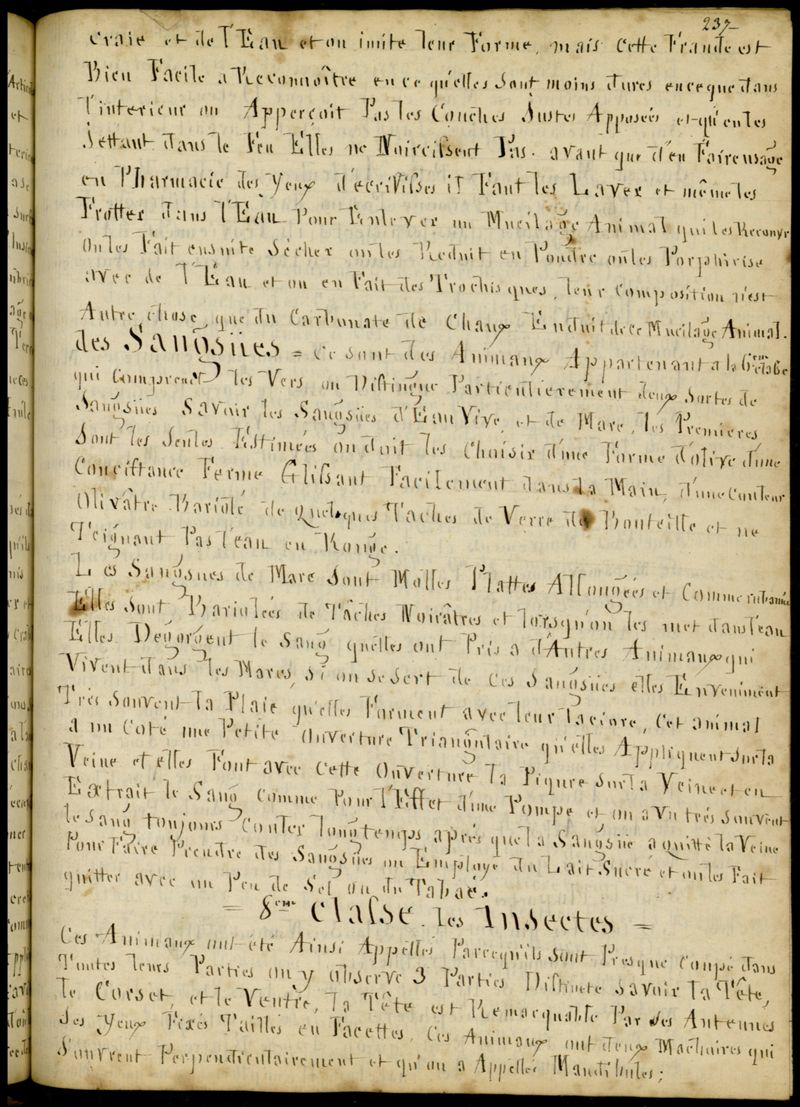 237
craie et de l'Eau et on imite leur Forme, mais cette Fraude est
Bien Facile a Reconnoître en ce qu'elles sont moins dures en ce que dans
l'interieur on Apperçoit Pas les Couches Justes Apposées et qu'en les
Jettant dans le Feu Elles ne Noircissent Pas. avant que d'en Faire usage
en Pharmacie des Yeux d'ecrivisses il Faut les Laver et même les
Frotter dans l'Eau Pour Enlever un Mucilage Animal qui les Recouvre
On les Fait ensuite Sécher on les Reduit en Poudre on les Porphirise
avec de l'Eau et on en Fait des Trochisques, leur Composition n'est
Autre chose que du Carbonate de Chaux Enduit de ce Mucilage Animal.
des Sangsües = Ce sont des Animaux Appartenant a la
qui Comprend les Vers, on Distingue Particulierement deux Sortes de
Sangsües Savoir les Sangsües d'Eau Vive, et de Mare, les Premieres
Sont les Seules Estimées on doit les Choisir d'une Forme d'olive d'une
Consistance Ferme Glissant Facilement dans la Main, d'une Couleur
Olivâtre Bariolé de Quelques Taches de Verre de Bouteille et ne
Teignant Pas l'eau en Rouge.
Les Sangsues de Mare Sont Molles Plattes Allongées et Comme
Elles Sont Bariolées de Tâches Noirâtres et lorsqu'on les met dans l'eau
Elles Dégorgent le Sang qu'elles ont Pris a d'Autres Animaux qui
Vivent dans les Mares, Si on se sert de Ces Sangsües elles Enveniment
Trés Souvent la Plaie qu'elles Forment avec leur Cet animal
a un Coté une Petite Ouverture Triangulaire qu'elles Appliquent Sur la
Veine et elles Font avec Cette Ouverture la Piqure Sur la Veine et en
Extrait le Sang Comme Pour l'Effet d'une Pompe et on a Vu trés Souvent
le Sang toujours Couler longtemps, aprés que la Sangsüe a quitté la Veine
Pour Faire Prendre des Sangsües on Employe du Lait Sucré et on les Fait
quitter avec un Peu de Sel ou du Tabac.
= 8eme Classe. les Insectes =
Ces Animaux ont été Ainsi Appellés Parcequ'ils Sont Presque Coupé dans
Toutes leurs Parties on y observe 3 Parties Distincte Savoir la Tête,
le Corset, et le Ventre, la Tête est Remarquable Par des Antennes
des Yeux Fixes Taillés en Facettes, Ces Animaux ont deux Machoires qui
S'ouvrent Perpendiculairement et qu'on a Appellés Mandibules;